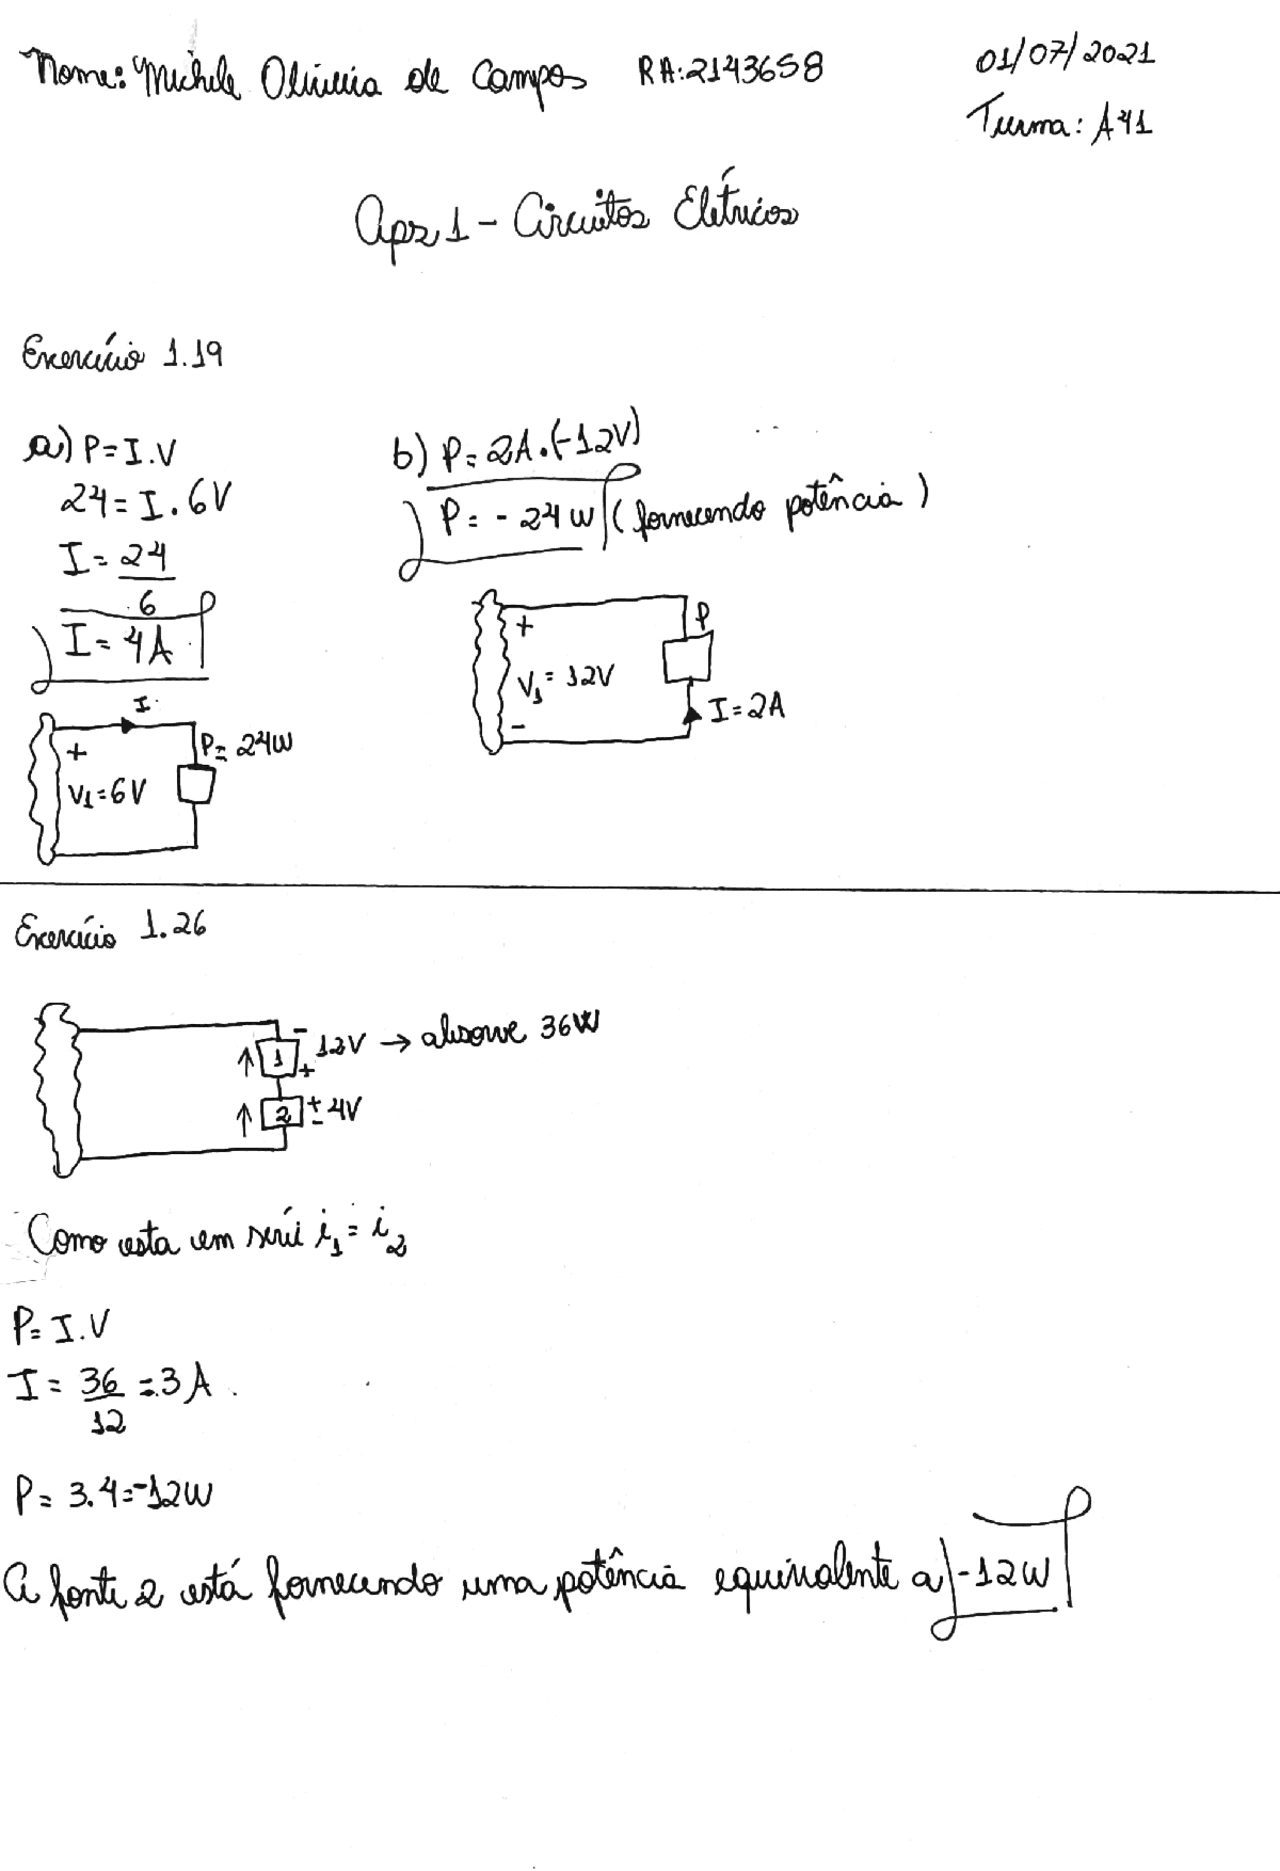 Nome: Michele Oliveira de Campos RA:2143658
01/07/2021
Turma: A41
Aps 1 - Circuitos Elétricos
Exercício 1.19
a) P=I.V
24=I.6V
I=24
6
I=4A
I
P=24W
+
V1=6V
b) P=2A.(-12V)
P=-24W (fornecendo potência)
+
P
V1=12V
-
I=2A
Exercício 1.26
-
1 12V → absorve 36W
+
2 + 4V
-
Como esta em série i1=i2
P=I.V
I=36 =3A.
12
P=3.4=-12W
A fonte 2 está fornecendo uma potência equivalente a -12W